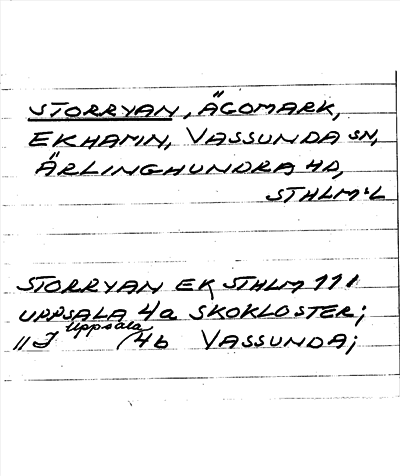 STORRYAN, ÄGOMARK,
EKHAMN, VASSUNDA SN,
ÄRLINGHUNDRA HD,
STHLM:L
STORRYAN EK STHLM 111
UPPSALA 4a SKOKLOSTER;
Uppsala
4b VASSUNDA;